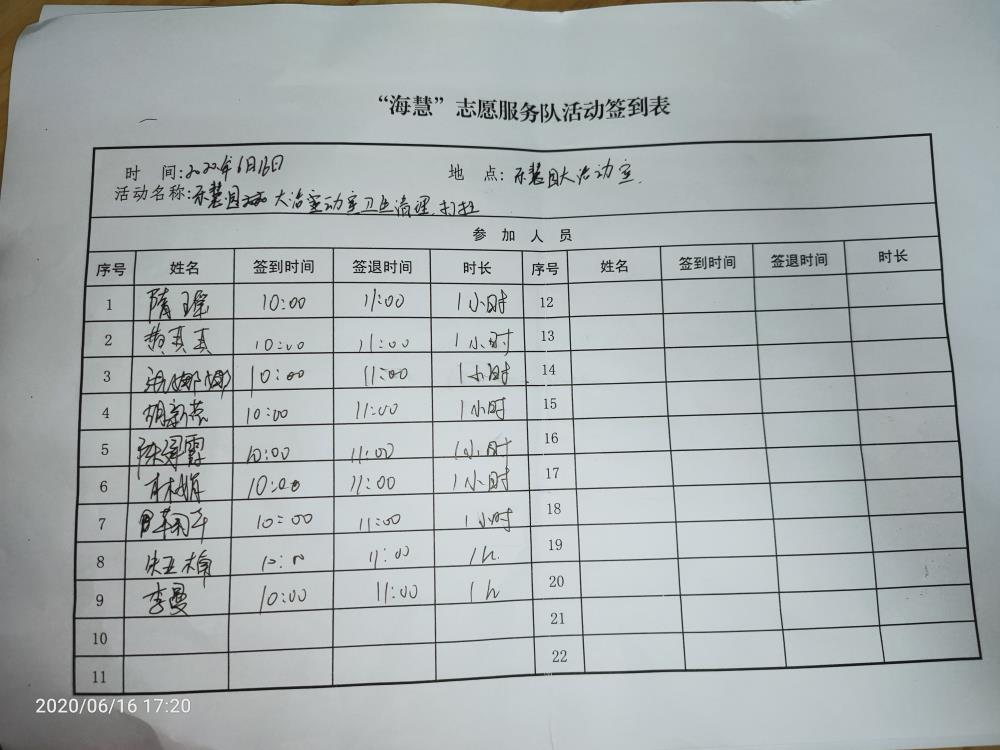 “海慧”志愿服务队活动签到表
时 间:2020年6月16日 地 点: 慧园大活动室
活动名称: 慧园 大活动室卫生清理.打扫
参 加 人 员
序号 姓名 签到时间 签退时间 时长 序号 姓名 签到时间 签退时间 时长
1 隋瑶 10:00 11:00 1小时 12
2 黄真真 10:00 11:00 1小时 13
3 张娜娜 10:00 11:00 1小时 14
4 胡新荣 10:00 11:00 1小时 15
5 10:00 11:00 1小时 16
6 10:00 11:00 1小时 17
7 10:00 11:00 1小时 18
8 10:00 11:00 1h 19
9 李曼 10:00 11:00 1h 20
10 21
11 22
2020/06/16 17:20